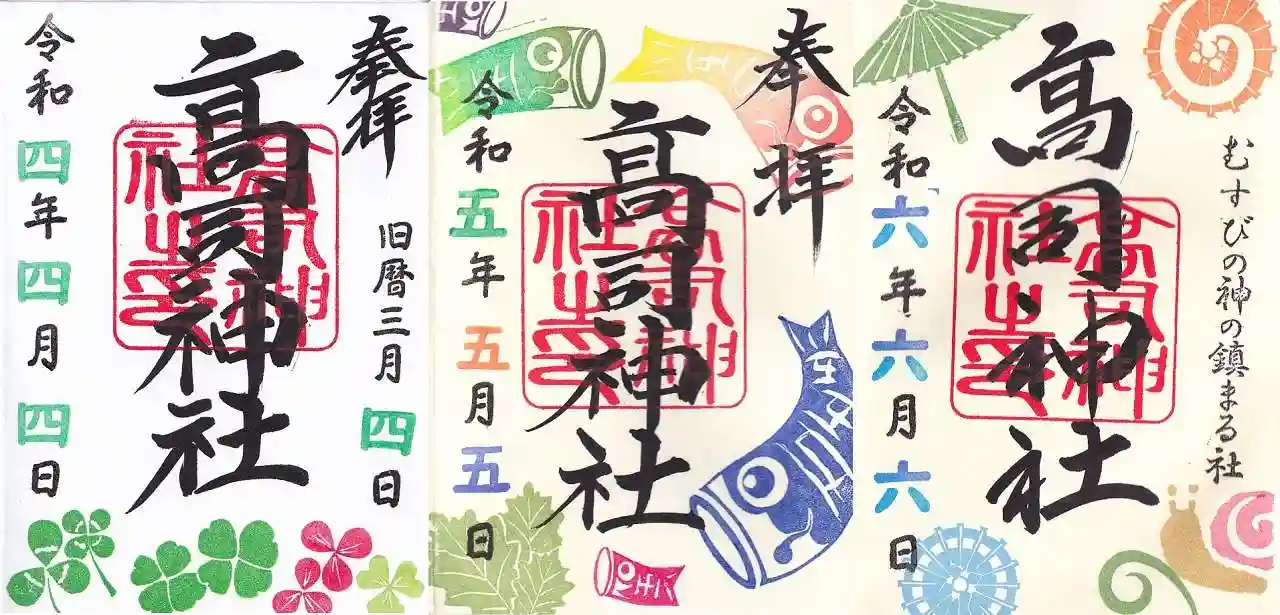 奉拝
旧暦三月四日
高司神社
高司神
社之印
令和四年四月四日
奉拝
高司神社
高司神
社之印
令和五年五月五日
むすびの神の鎮まる社
高司神社
高司神
社之印
令和六年六月六日